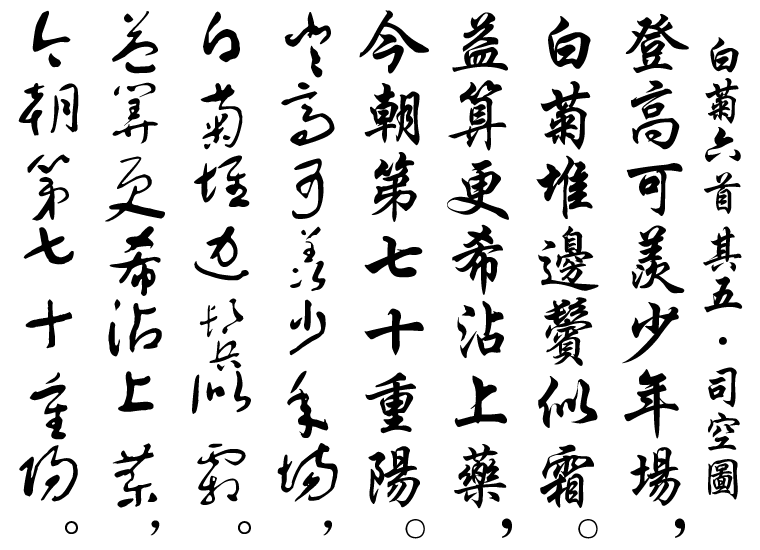 白菊六首 其五·司空圖
登高可羨少年場，
白菊堆邊鬢似霜。
益算更希沾上藥，
今朝第七十重陽。
登高可羨少年場，
白菊堆邊鬢似霜。
益算更希沾上藥，
今朝第七十重陽。